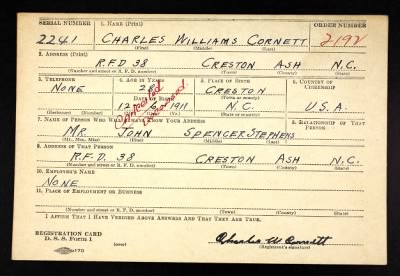 SERIAL NUMBER 1. NAME (Print) ORDER NUMBER
2241 CHARLES WILLIAMS CORNETT 2192
(First) (Middle) (Last)
2. ADDRESS (Print)
R.F.D 38 CRESTON ASH N.C.
(Number and street or R. F. D. number) (Town) (County) (State)
3. TELEPHONE 4. AGE IN YEARS 5. PLACE OF BIRTH 6. COUNTRY OF CITIZENSHIP
NONE 28 CRESTON
DATE OF BIRTH (Town or county)
12 5 1911 N.C. U.S.A.
(Exchange) (Number) (Mo.) (Day) (Yr.) (State or country)
7. NAME OF PERSON WHO WILL ALWAYS KNOW YOUR ADDRESS 8. RELATIONSHIP OF THAT PERSON
MR. JOHN SPENCER STEPHENS
(Mr., Mrs., Miss) (First) (Middle) (Last)
9. ADDRESS OF THAT PERSON
R.F.D. 38 CRESTON ASH N.C.
(Number and street or R. F. D. number) (Town) (County) (State)
10. EMPLOYER'S NAME
NONE
11. PLACE OF EMPLOYMENT OR BUSINESS
(Number and street or R. F. D. number) (Town) (County) (State)
I AFFIRM THAT I HAVE VERIFIED ABOVE ANSWERS AND THAT THEY ARE TRUE.
REGISTRATION CARD
D. S. S. Form 1 (over) Charles W Cornett
(Registrant's signature)